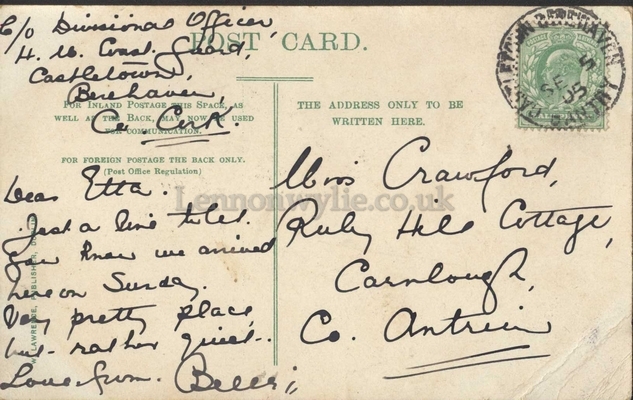 C/o Divisional Officer,
H. M. Coast Guard,
Castletown,
Berehaven,
Co. Cork.
POST CARD.
FOR INLAND POSTAGE THIS SPACE, AS
WELL AS THE BACK, MAY NOW BE USED
FOR COMMUNICATION.
FOR FOREIGN POSTAGE THE BACK ONLY.
(Post Office Regulation)
THE ADDRESS ONLY TO BE
WRITTEN HERE.
Dear Etta.
Just a line to let
you know we arrived
here on Sunday.
Very pretty place,
but rather quiet.
Love from
LAWRENCE, PUBLISHER, DUBLIN
Miss Crawford,
Ruby Hill Cottage,
Carnlough,
Co. Antrim
CASTLETOWN BEREHAVEN
SE 5
05
HALFPENNY
Lennonwylie.co.uk